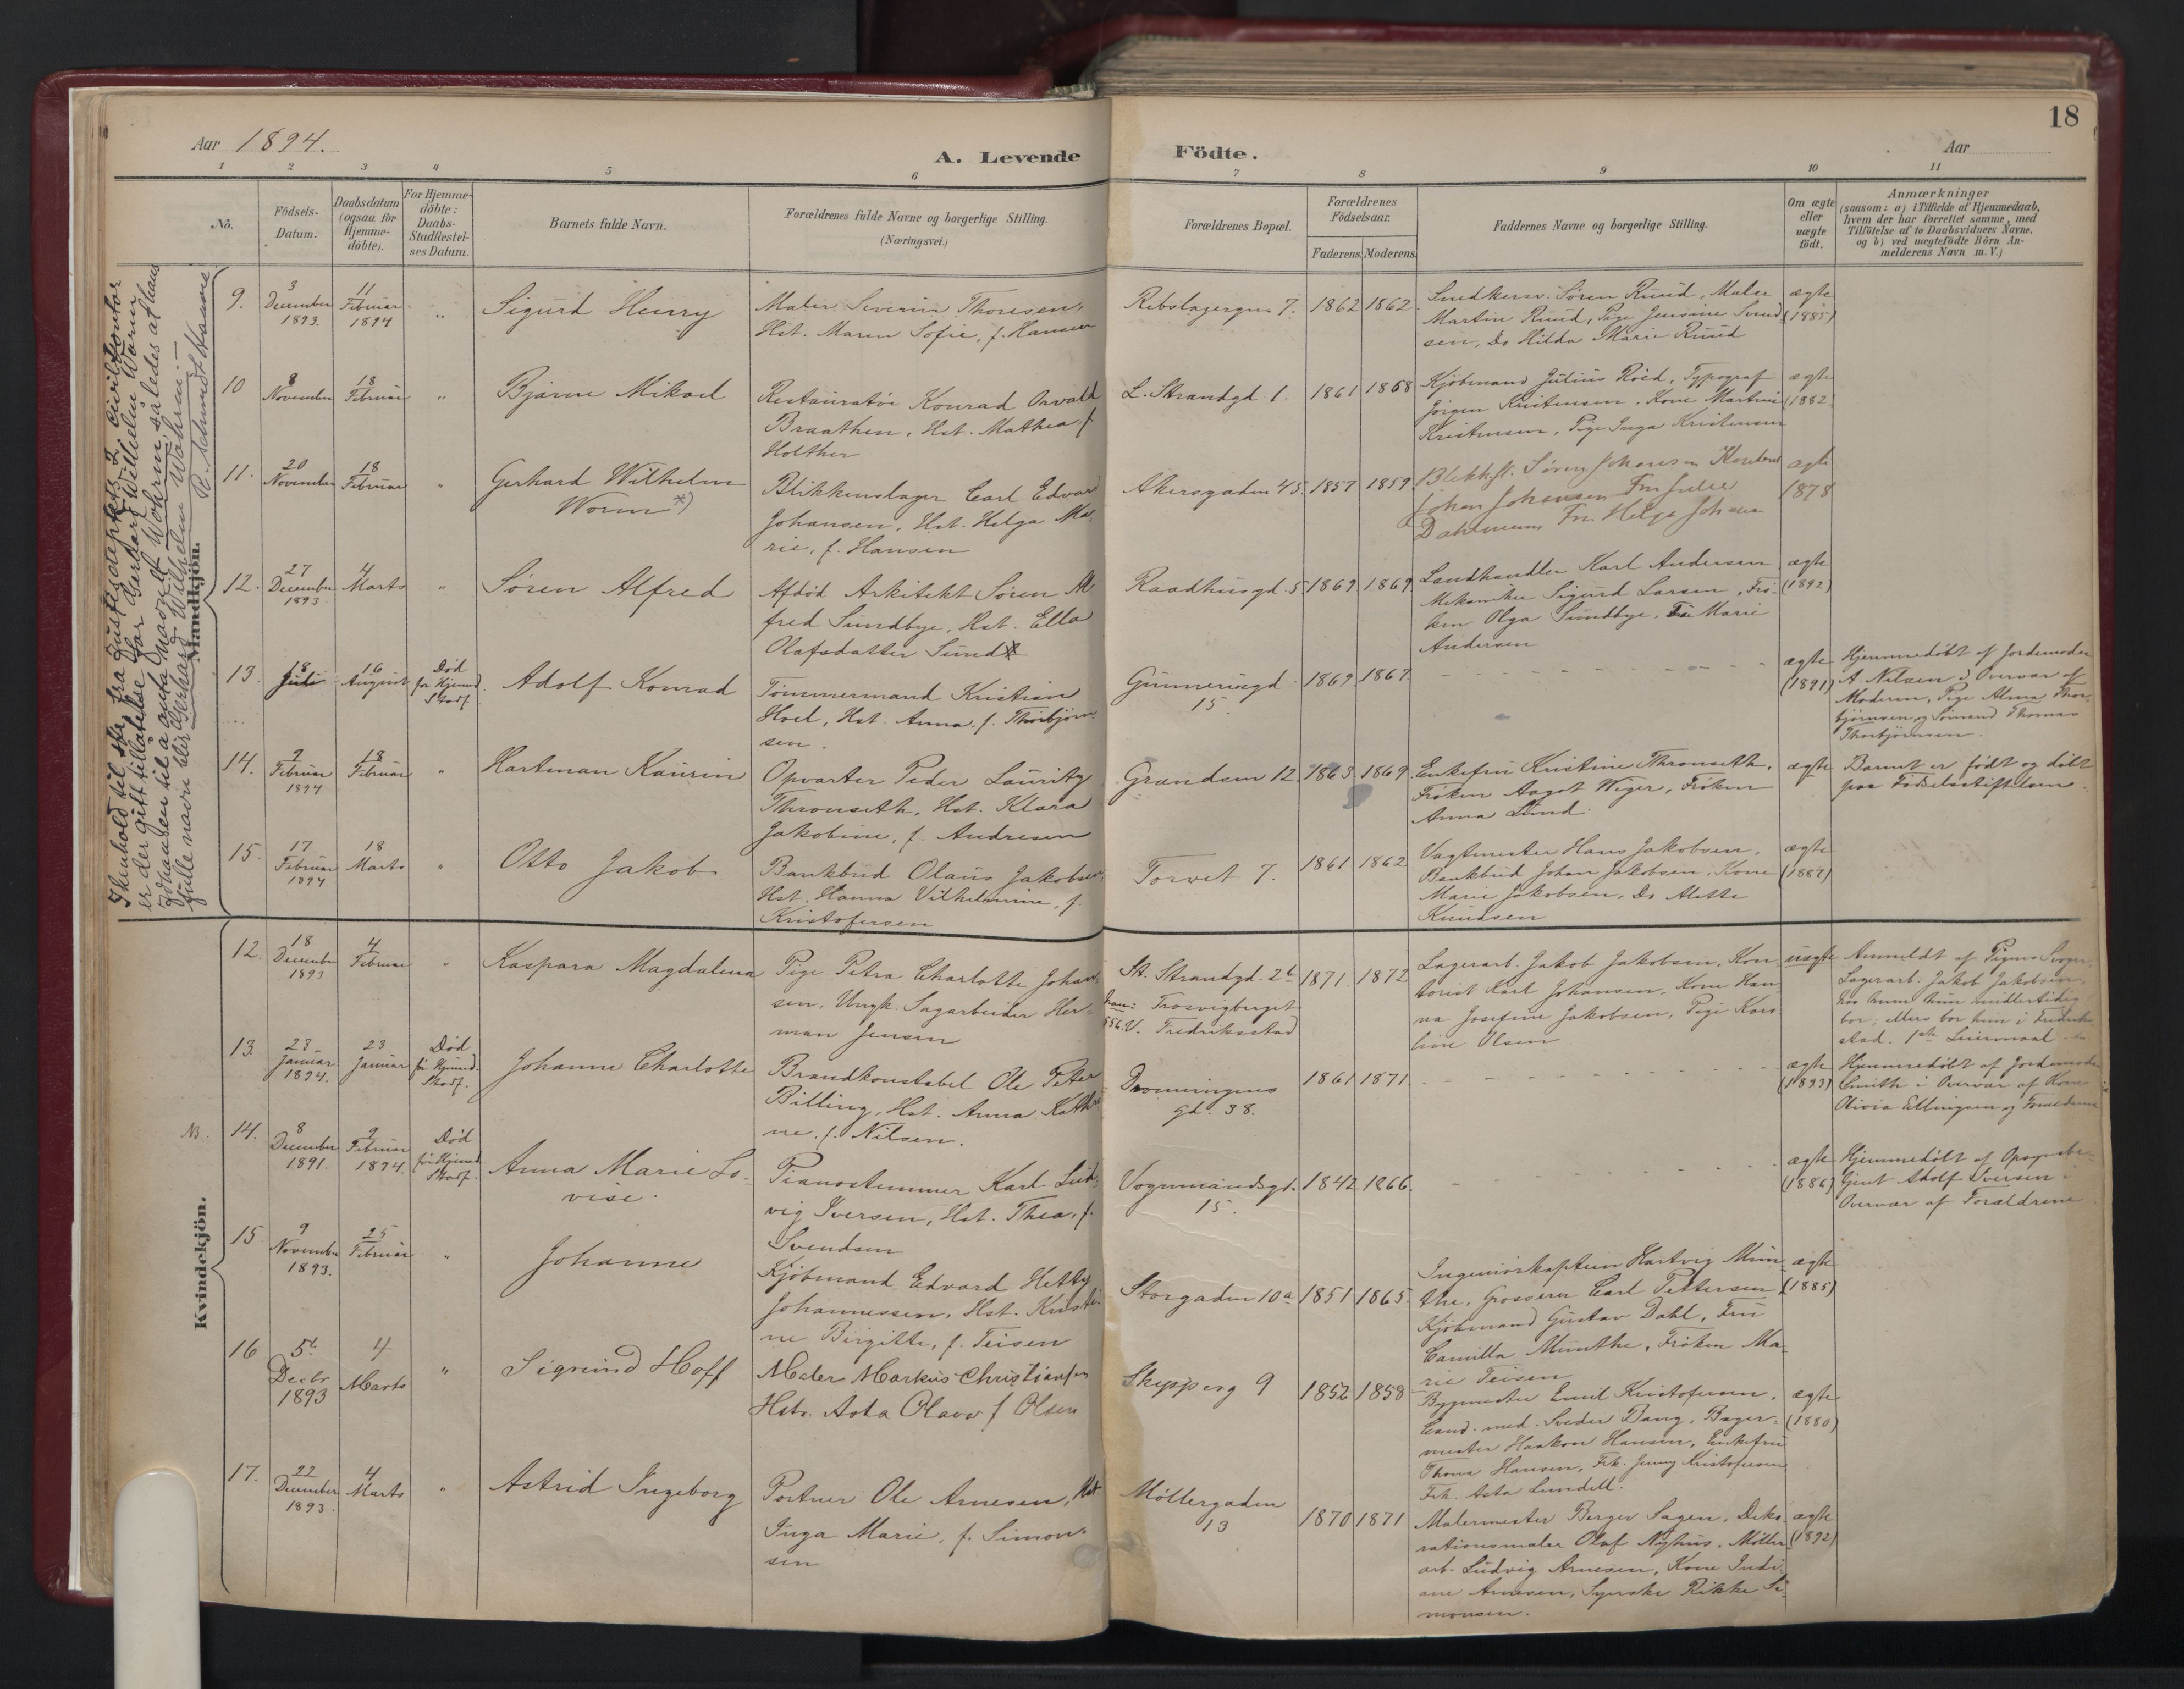 18
Aar 1894.
A. Levende
Födte.
Aar
1 2 3 4 5 6 7 8 9 10 11
No.
Födsels-
Datum.
Daabsdatum
(ogsaa for
Hjemme-
döbte).
For Hjemme-
döbte:
Daabs-
Stadfæstel-
ses Datum.
Barnets fulde Navn.
Forældrenes fulde Navne og borgerlige Stilling.
(Næringsvei.)
Forældrenes Bopæl.
Forældrenes
Födselsaar.
Faderens. Moderens.
Faddernes Navne og borgerlige Stilling.
Om ægte
eller
uægte
födt.
Anmærkninger
(saasom: a) i Tilfælde af Hjemmedaab,
hvem der har forrettet samme, med
Tilföielse af to Daabsvidners Navne,
og b) ved uægtefödte Börn An-
melderens Navn m.V.)
Mandkjön.
9.
3
December
1893.
11
Februar
1894
"
Sigurd Henry
Maler Severin Thoresen,
Hst. Maren Sofie, f. Hansen
Rebslagergn. 7.
1862 1862
Snedkersv. Søren Ruud, Maler
Martin Ruud, Pige Jensine Svend
sen, Do Hilda Marie Ruud
ægte
(1885)
10
8
November
18
Februar
"
Bjarne Mikael
Restauratør Konrad Osvald
Braathen, Hst. Mathea f.
Holther
L. Strandgd. 1.
1861 1868
Kjøbmand Julius Røed, Typograf
Jørgen Kristensen, Kone Martine
Kristensen, Pige Inga Kristensen
ægte
(1882
11.
20
November
18
Februar
"
Gerhard Wilhelm
Worm *)
Blikkenslager Carl Edvard
Johansen, Hst. Helga Ma-
rie, f. Hansen
Akersgaden 45
1857 1859
Søren Johansen
Johan Johansen Fru Julie
Fru Helga Johansen
ægte
1878
12.
27
December
1893
4
Marts
"
Søren Alfred
Afdød Arkitekt Søren Al
fred Sundbye, Hst. Ella
Olafsdatter Sundt
Raadhusgd. 5
1869 1869
Landhandler Karl Andersen
Mekaniker Sigurd Larsen, Frö-
ken Olga Sundbye, Fru Marie
Andersen
ægte
(1892)
13.
18
Juli
16
August
Död
før Hjemmed.
Stadf.
Adolf Konrad
Tømmermand Kristian
Hoel, Hst. Anna, f. Thorbjørn-
sen.
Gunnerusgd
15
1869 1867
ægte
(1891)
Hjemmedöbt af Jordemoder
A. Nilsen i Overvær af
Moderen, Pige Alma Thor-
bjørnsen og Sömand Thomas
Thorbjørnsen.
14.
2
Februar
1894
18
Februar
"
Hartman Kaurin
Opvarter Peder Lauritz
Thronseth, Hst. Klara
Jakobine, f. Andresen
Grændsen 12
1863 1869
Enkefru Kristine Thronseth,
Frøken Aagot Wiger, Frøken
Anna Lund.
ægte
Barnet er født og döbt
paa Fødselsstiftelsen.
15.
17
Februar
1894
18
Marts
"
Otto Jakob
Bankbud Olaus Jakobsen,
Hst. Hanna Vilhelmine, f.
Kristofersen
Torvet 7.
1861 1862
Vagtmester Hans Jakobsen,
Bankbud Johan Jakobsen, Kone
Marie Jakobsen, Do Alette
Knudsen
ægte
(1887)
I henhold til skr. fra Justisdeptets 2. civilkontor
er der gitt tillatelse for Gerhard Wilhelm Worm
Johansen til å anta navnet Wohrm, således at hans
fulle navn blir Gerhard Wilhelm Wohrm.
R. Schmidt Hansen
Kvindekjön.
12.
18
December
1893
4
Februar
"
Kaspara Magdalena
Pige Petra Charlotte Johan-
sen, Ungk. Sagarbeider Her-
man Jensen
St. Strandgd. 2b
Trosvigberget
Fredriksstad
1871 1872
Lagerarb. Jakob Jakobsen, Kon-
torist Karl Johansen, Kone Han
na Josefine Jakobsen, Pige Karo
line Olsen
uægte
Anmeldt af Pigens Svoger,
Lagerarb. Jakob Jakobsen,
hos hvem hun midlertidig
bor; ellers bor hun i Fredriks
stad. 1ste Leiermaal
13.
23
Januar
1894.
23
Januar
Död
før Hjemmed.
Stadf.
Johanne Charlotte
Brandkonstabel Ole Peter
Billing, Hst. Anna Kathri
ne, f. Nilsen.
Dronningens
gd. 38.
1861 1871
ægte
(1893)
Hjemmedöbt af Jordemoder
Smith i Overvær af Kone
Olivia Ellingsen og Forældrene
NB.
14.
8
December
1891.
9
Februar
1894.
Död
før Hjemmed.
Stadf.
Anna Marie Lo-
vise.
Pianostemmer Karl Lud-
vig Iversen, Hst. Thea, f.
Svendsen
Vognmandsgd.
15.
1842 1866.
ægte
(1886)
Hjemmedöbt af Opsynsbe-
tjent Adolf Iversen i
Overvær af Forældrene
15
9
November
1893.
25
Februar
"
Johanne
Kjöbmand Edvard Hetty
Johannessen, Hst. Kristi-
ne Birgitte, f. Teisen
Storgaden 10a
1851 1865
Ingeniørkaptein Hartvig Mun
the, Grosserer Carl Pettersen
Kjöbmand Gustav Dahl, Fru
Camilla Munthe, Frøken Ma-
rie Teisen
ægte
(1885)
16
5t
Decbr
1893
4
Marts
"
Sigrund Hoff
Maler Markus Christiansen
Hstr. Asta Olava f Olsen
Skipperg 9
1852 1858
Bygmester Emil Kristofersen,
Cand. med. Sveder Bang, Bager-
mester Haakon Hansen, Enkefru
Thona Hansen, Frk. Jenny Kristofersen
Frk. Asta Lundell.
ægte
(1880)
17.
22
December
1893.
4
Marts
"
Astrid Ingeborg
Portner Ole Arnesen, Hst
Inga Marie, f. Simon-
sen
Møllergaden
13
1870 1871
Malermester Berger Sagen, Deko
rationsmaler Olaf Nyhus, Møller
arb. Ludvig Arnesen, Kone Indi
ane Arnesen, Syerske Rikke Si-
monsen.
ægte
(1892)